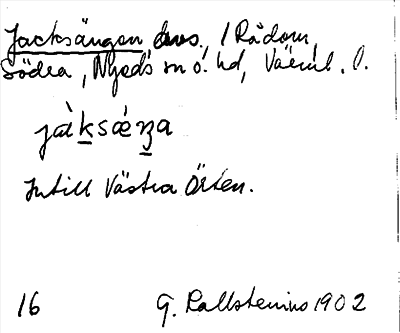 Jacksängen hus, 1 Rådom,
Södra, Nyeds sn o. hd, Värml. l.
jàksǽŋa
Intill Västra Örten.
16 G. Kallstenius 1902